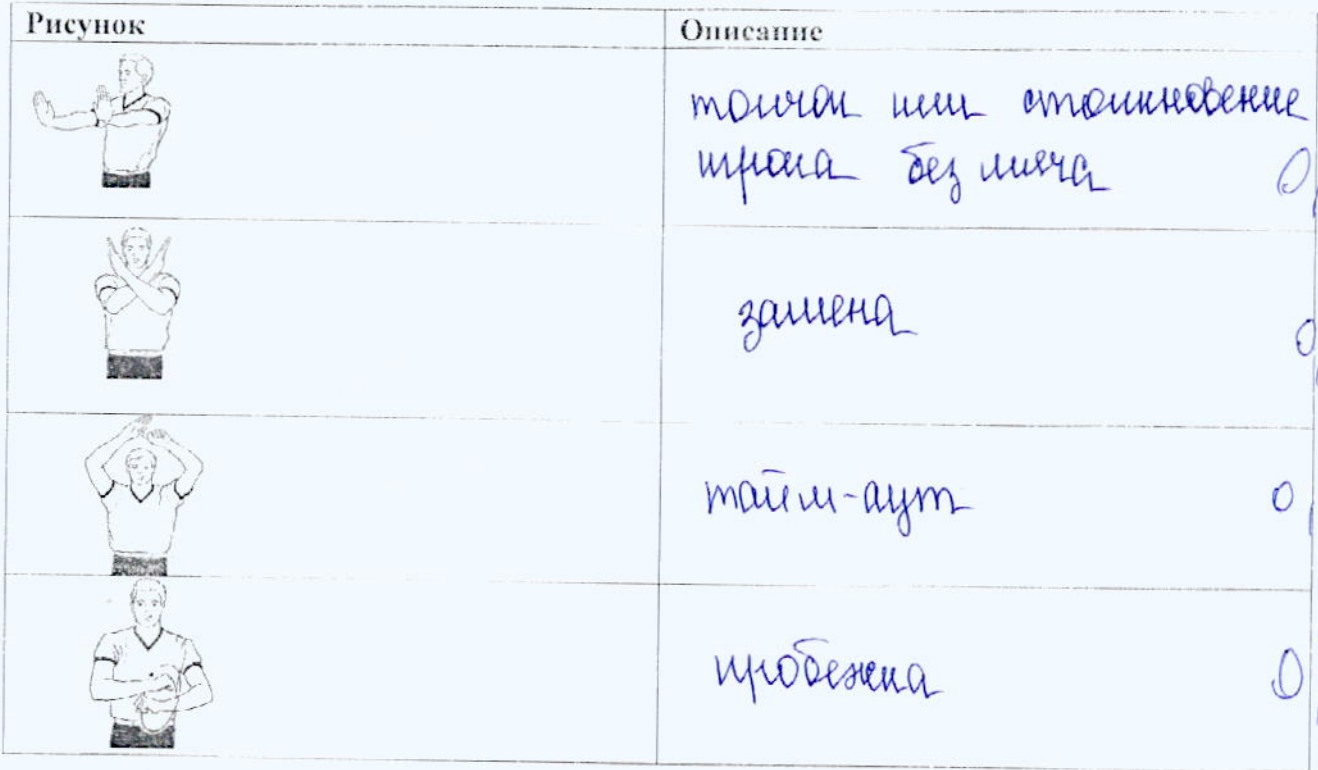 Рисунок
Описание
толчок или столкновение
игрока без мяча 0,
замена 0,
тайм-аут 0,
пробежка 0,